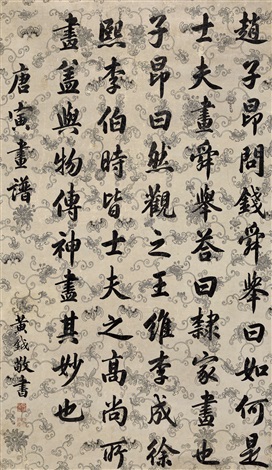 趙子昂問錢舜舉曰如何是
士夫畫舜舉荅曰隸家畫也
子昂曰然觀之王維李成徐
熙李伯時皆士夫之高尚所
畫盖與物傳神盡其妙也
唐寅畫譜
黃鉞敬書